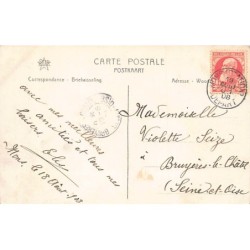 CARTE POSTALE
POSTKAART
Correspondance - Briefwisseling
Adresse
avec nos meilleures
amitiés et tous nos
baisers
Mons, le 18
Mademoiselle
Violette Seize
à
Bruyères-le-Châtel
(Seine-et-Oise)